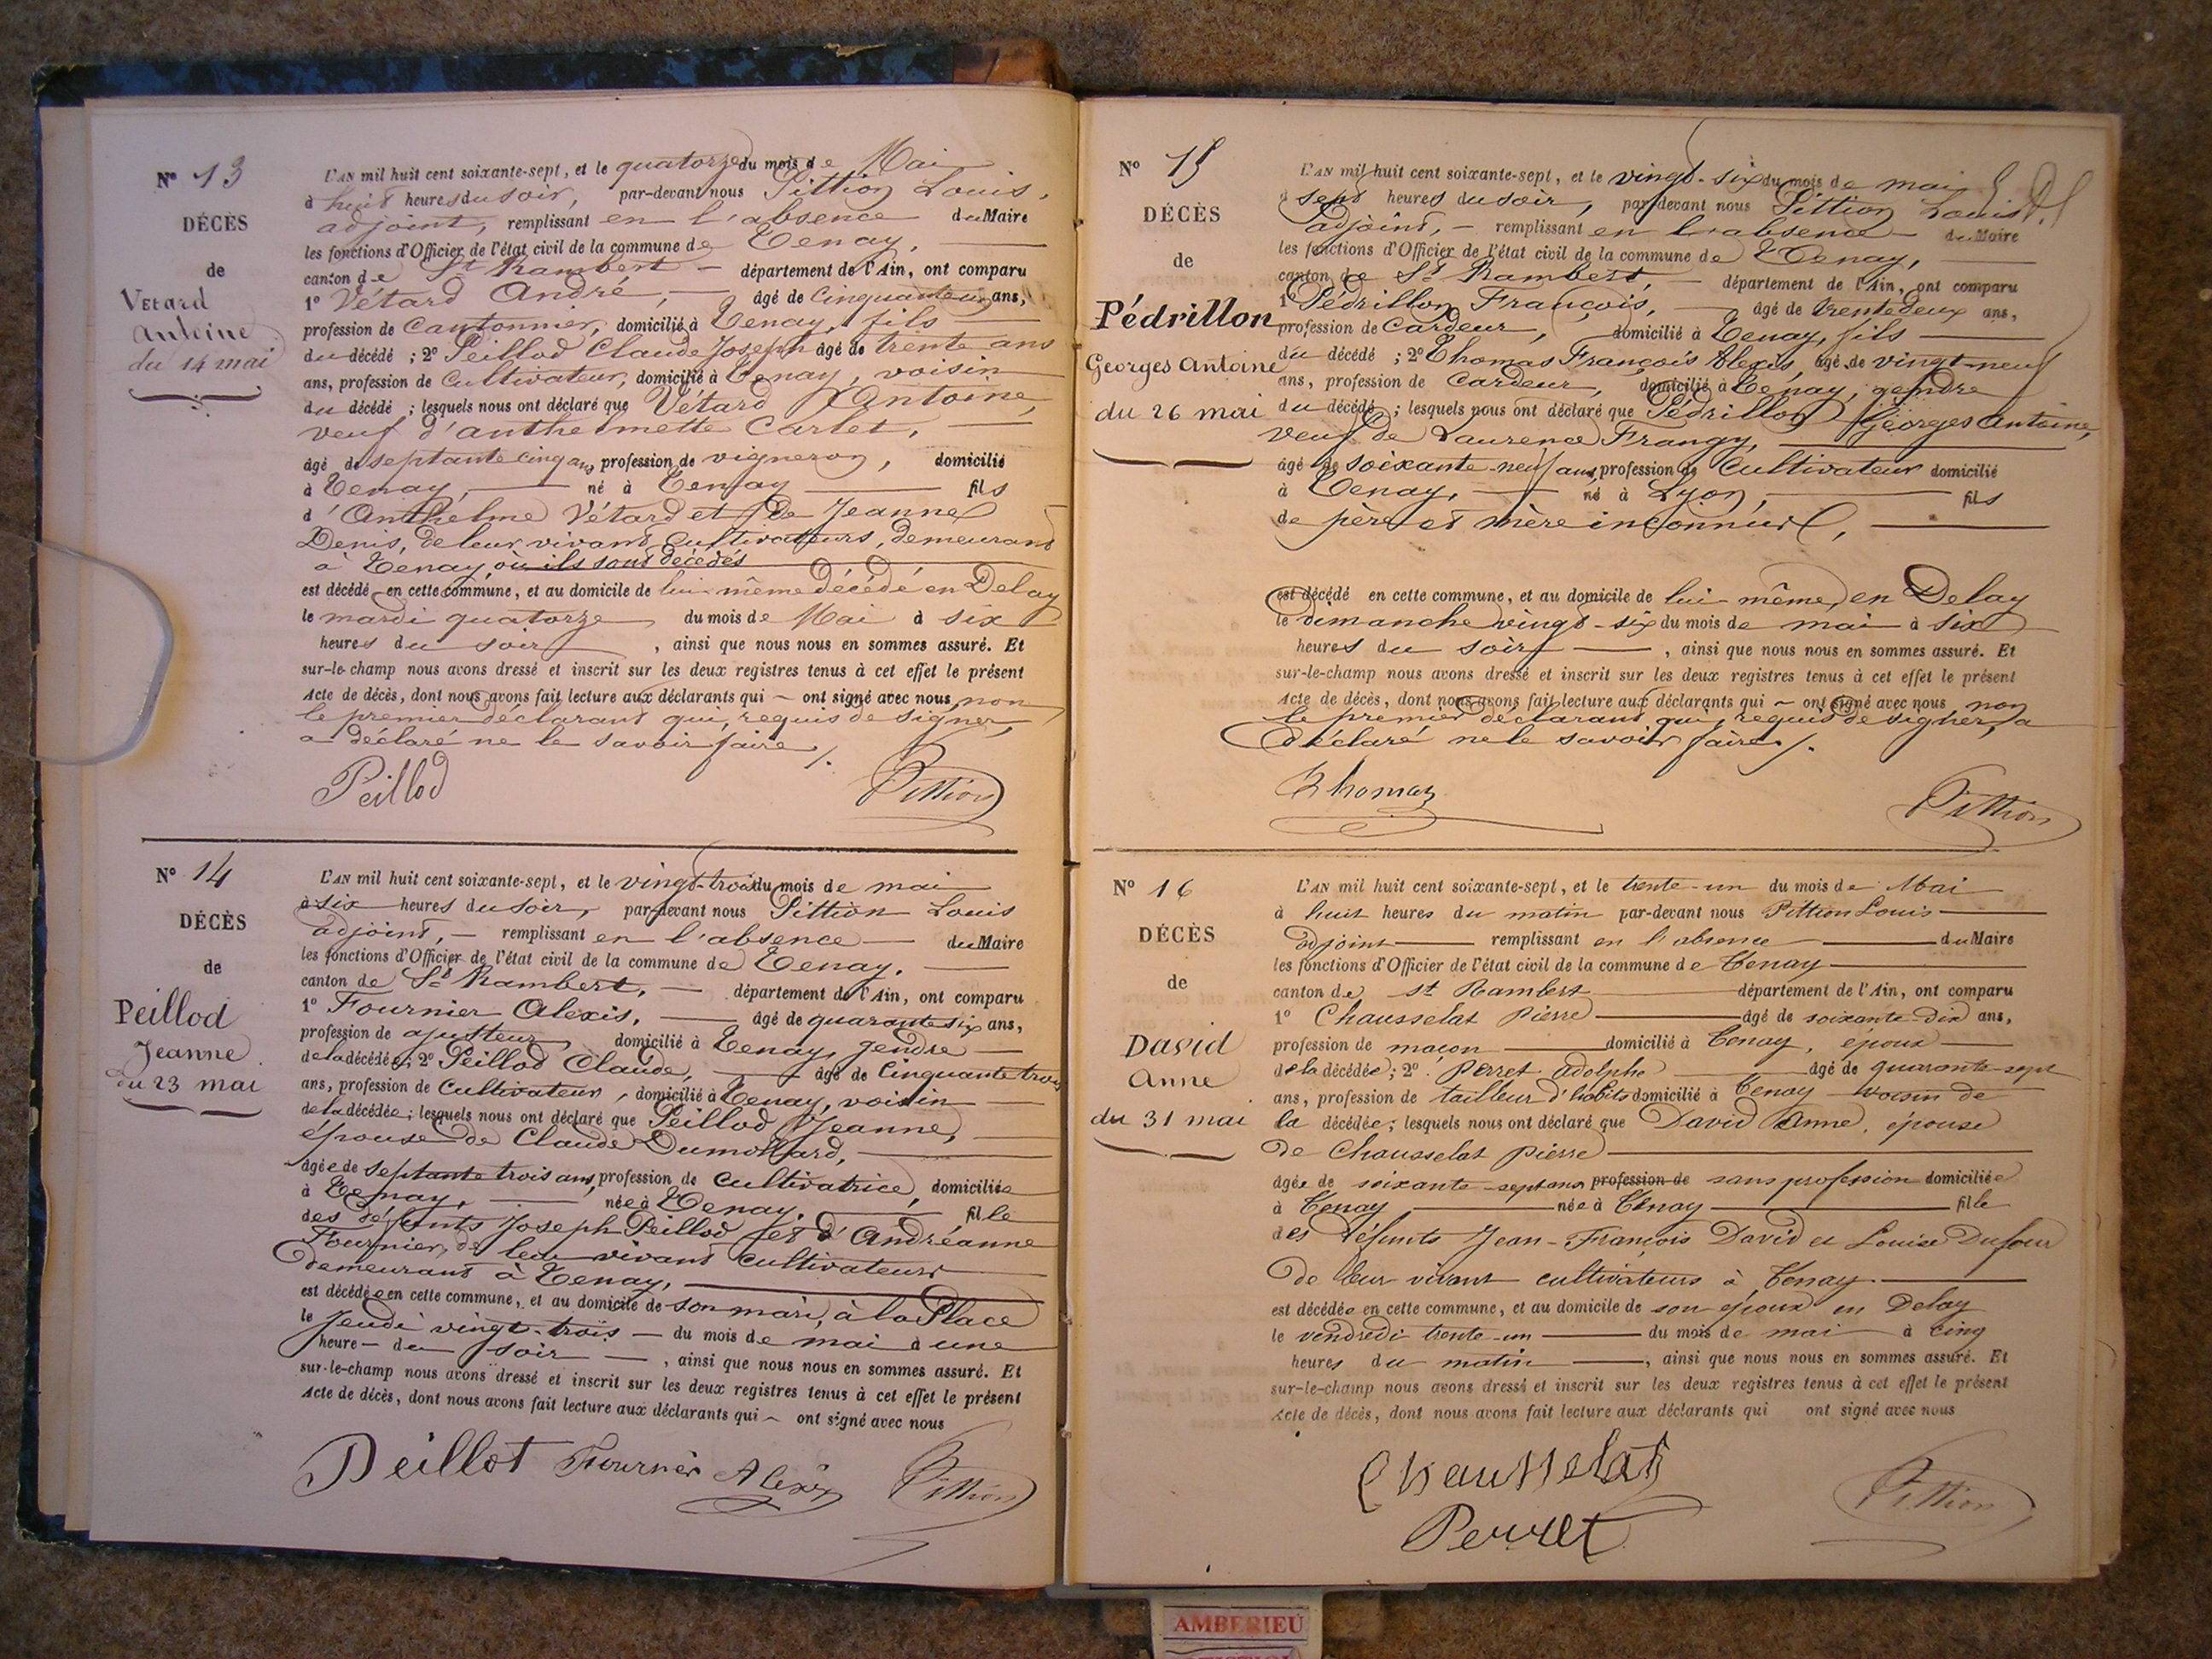 N° 13
DÉCÈS
de
Vétard
Antoine
du 14 mai
L'AN mil huit cent soixante-sept, et le quatorze du mois de Mai
à huit heures du soir, par-devant nous Pittion Louis,
adjoint, remplissant en l'absence du Maire
les fonctions d'Officier de l'état civil de la commune de Tenay,
canton de St Rambert — département de l'Ain, ont comparu
1° Vétard André, — âgé de cinquante un ans,
profession de Cantonnier, domicilié à Tenay, fils
du décédé ; 2° Peillod Claude Joseph âgé de trente ans
ans, profession de Cultivateur, domicilié à Tenay, voisin
du décédé ; lesquels nous ont déclaré que Vétard Antoine,
veuf d'anthelmette Carlet,
âgé de septante cinq ans, profession de vigneron, domicilié
à Tenay, né à Tenay fils
d'Anthelme Vétard et de Jeanne
Denis, de leur vivant Cultivateurs, demeurant
à Tenay, où ils sont décédés
est décédé en cette commune, et au domicile de lui même décédé en Delay
le mardi quatorze du mois de Mai à six
heures du soir, ainsi que nous nous en sommes assuré. Et
sur-le-champ nous avons dressé et inscrit sur les deux registres tenus à cet effet le présent
Acte de décès, dont nous avons fait lecture aux déclarants qui — ont signé avec nous, non
le premier déclarant qui, requis de signer,
a déclaré ne le savoir faire ./.
Peillod Pittion
N° 14
DÉCÈS
de
Peillod
Jeanne
du 23 mai
L'AN mil huit cent soixante-sept, et le vingt-trois du mois de mai
à six heures du soir, par-devant nous Pittion Louis
adjoint, — remplissant en l'absence — du Maire
les fonctions d'Officier de l'état civil de la commune de Tenay.
canton de St Rambert, — département de l'Ain, ont comparu
1° Fournier Alexis, — âgé de quarante six ans,
profession de ajusteur, domicilié à Tenay, gendre
de la décédée ; 2° Peillod Claude, âgé de Cinquante trois
ans, profession de Cultivateur, domicilié à Tenay, voisin
de la décédée ; lesquels nous ont déclaré que Peillod Jeanne,
épouse de Claude Dumollard,
âgée de septante trois ans, profession de Cultivatrice, domiciliée
à Tenay, née à Tenay. fille
des défunts Joseph Peillod et d'Andréanne
Fournier, de leur vivant cultivateurs
demeurant à Tenay,
est décédée en cette commune, et au domicile de son mari, à la Place
le Jeudi vingt-trois — du mois de mai à une
heure — du soir —, ainsi que nous nous en sommes assuré. Et
sur-le-champ nous avons dressé et inscrit sur les deux registres tenus à cet effet le présent
Acte de décès, dont nous avons fait lecture aux déclarants qui — ont signé avec nous
Peillot Fournier Alexis Pittion
N° 15
DÉCÈS
de
Pédrillon
Georges Antoine
du 26 mai
L'AN mil huit cent soixante-sept, et le vingt-six du mois de mai
à sept heures du soir, par-devant nous Pittion Louis
adjoint, — remplissant en l'absence du Maire
les fonctions d'Officier de l'état civil de la commune de Tenay,
canton de St Rambert, — département de l'Ain, ont comparu
1° Pédrillon François, — âgé de trente deux ans,
profession de Cardeur, domicilié à Tenay, fils
du décédé ; 2° Thomas François Alexis, âgé de vingt-neuf
ans, profession de Cardeur, domicilié à Tenay, gendre
du décédé ; lesquels nous ont déclaré que Pédrillon Georges Antoine,
veuf de Laurence Frangy,
âgé de soixante-neuf ans, profession de Cultivateur domicilié
à Tenay, né à Lyon, fils
de père et mère inconnus,
est décédé en cette commune, et au domicile de lui-même, en Delay
le dimanche vingt-six du mois de mai à six
heures du soir —, ainsi que nous nous en sommes assuré. Et
sur-le-champ nous avons dressé et inscrit sur les deux registres tenus à cet effet le présent
Acte de décès, dont nous avons fait lecture aux déclarants qui — ont signé avec nous, non
le premier déclarant qui, requis de signer, a
déclaré ne le savoir faire ./.
Thomas Pittion
N° 16
DÉCÈS
de
David
Anne
du 31 mai
L'AN mil huit cent soixante-sept, et le trente-un du mois de Mai
à huit heures du matin par-devant nous Pittion Louis
adjoint remplissant en l'absence du Maire
les fonctions d'Officier de l'état civil de la commune de Tenay
canton de St Rambert département de l'Ain, ont comparu
1° Chausselat Pierre âgé de soixante-dix ans,
profession de maçon domicilié à Tenay, époux
de la décédée ; 2° Perret Adolphe âgé de quarante-sept
ans, profession de tailleur d'habits domicilié à Tenay voisin de
la décédée ; lesquels nous ont déclaré que David Anne, épouse
de Chausselat Pierre
âgée de soixante-sept ans profession de sans profession domiciliée
à Tenay née à Tenay fille
des défunts Jean-François David et Louise Dufour
de leur vivant cultivateurs à Tenay
est décédée en cette commune, et au domicile de son époux en Delay
le vendredi trente-un du mois de mai à cinq
heures du matin, ainsi que nous nous en sommes assuré. Et
sur-le-champ nous avons dressé et inscrit sur les deux registres tenus à cet effet le présent
Acte de décès, dont nous avons fait lecture aux déclarants qui ont signé avec nous
Chausselat
Perret Pittion
AMBERIEU